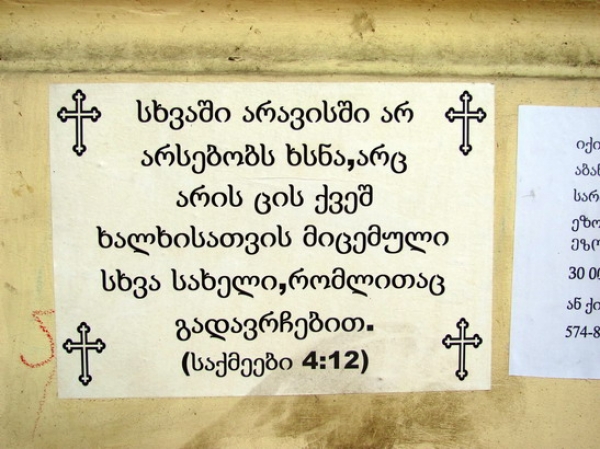 სხვაში არავისში არ
არსებობს ხსნა,არც
არის ცის ქვეშ
ხალხისათვის მიცემული
სხვა სახელი,რომლითაც
გადავრჩებით.
(საქმეები 4:12)
30 00
ან ქი
574-8